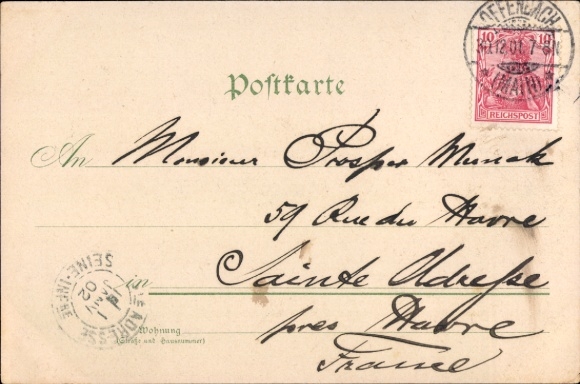 OFFENBACH
12.01. 7-8N
(MAIN)
10 10
REICHSPOST
Postkarte
An Monsieur Prosper Munak
59 Rue du Havre
in Sainte Adresse
près Havre
France
Wohnung
(Straße und Hausnummer)
STE ADRESSE
1
JANV
02
SEINE-INFRE